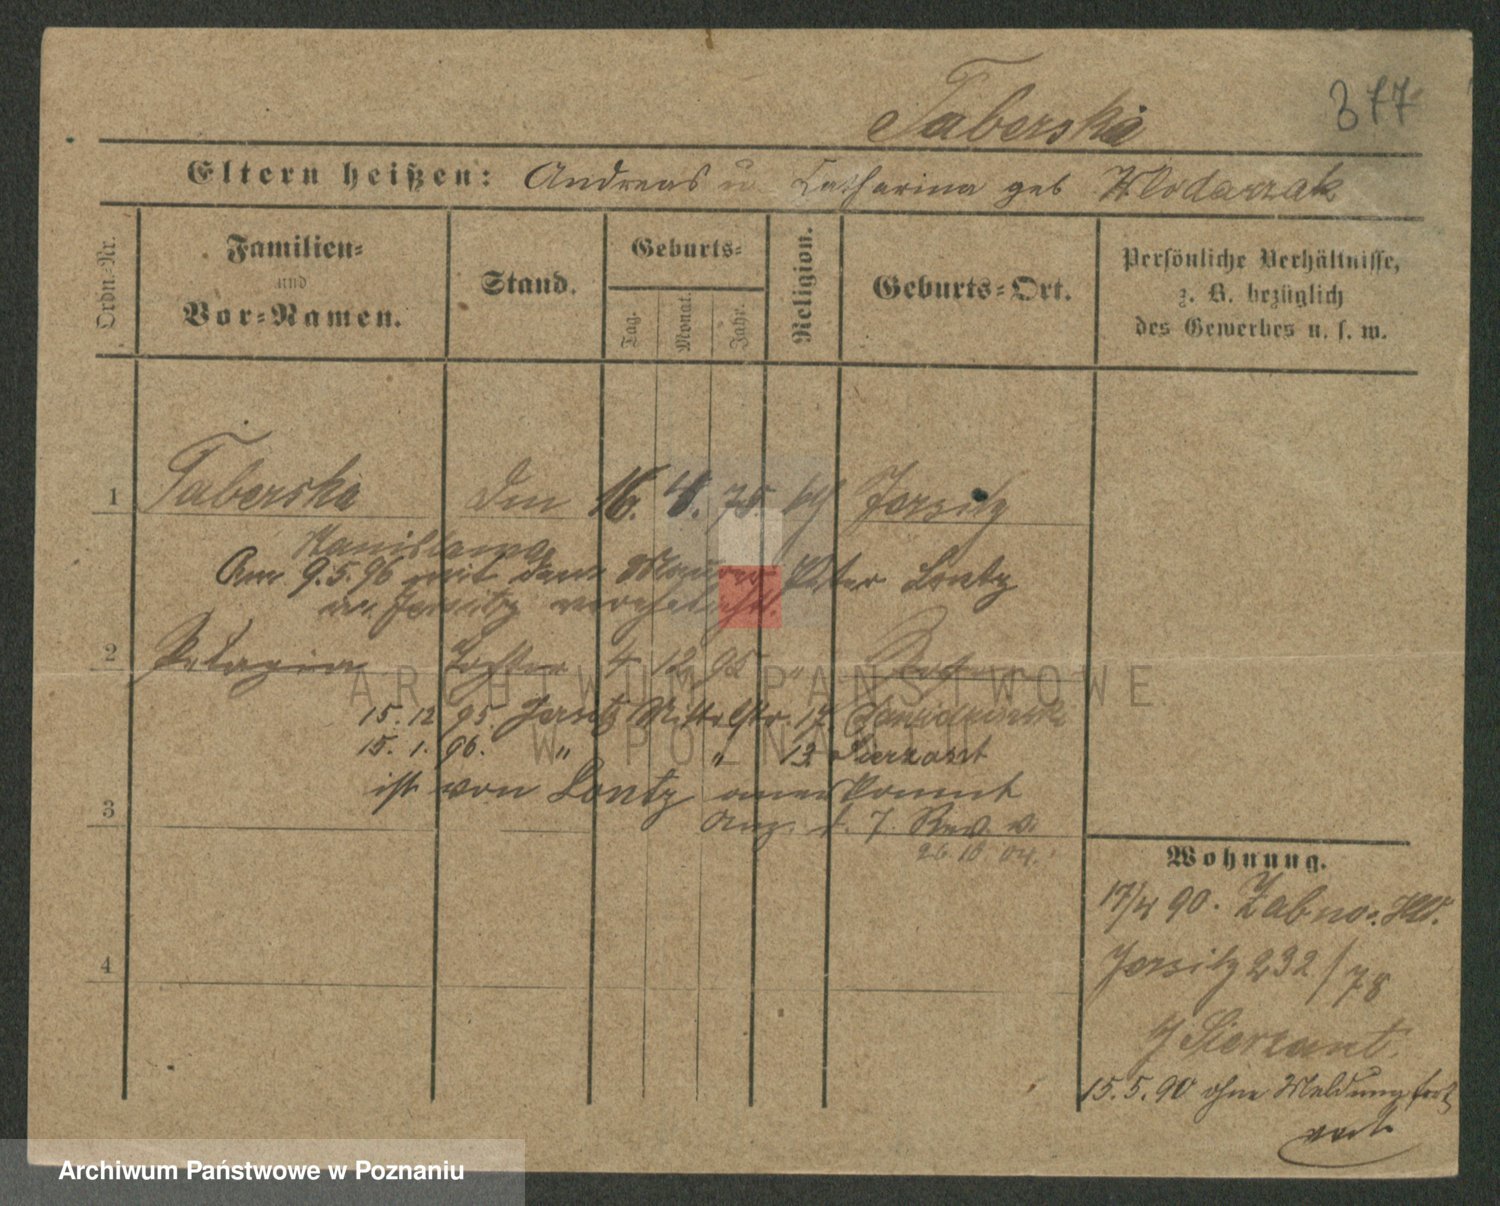 Taberska
377
Eltern heißen: Andreas u. Catharina geb Wlodarzak
Ordn.-Nr.
Familien-
und
Vor-Namen.
Stand.
Geburts-
Tag.
Monat.
Jahr.
Religion.
Geburts-Ort.
Persönliche Verhältnisse,
z. B. bezüglich
des Gewerbes u. s. w.
1 Taberska 16. 75. Jersitz
Stanislawa
Am 9.5.96 mit dem Maurer Peter Lontz
in Jersitz verehelicht.
2 Pelagia Tochter 4 12 95 "
15. 12. 95. Jersitz Mittelstr. 17.
15. 1. 96. " "
ist von Lontz anerkannt
3 Anz. d. 7. Rev. v.
26. 10. 04.
Wohnung.
17/4 90. Zabno.
4 Jersitz 232/78
b/ Sierzant.
15.5.90 ohne Meldung fort
ARCHIWUM PAŃSTWOWE
W POZNANIU
Archiwum Państwowe w Poznaniu